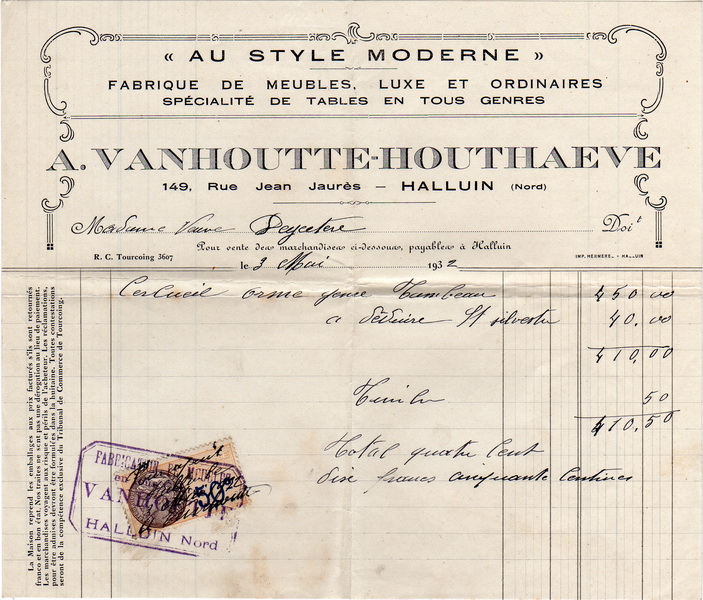 « AU STYLE MODERNE »
FABRIQUE DE MEUBLES, LUXE ET ORDINAIRES
SPÉCIALITÉ DE TABLES EN TOUS GENRES
A. VANHOUTTE-HOUTHAEVE
149, Rue Jean Jaurès — HALLUIN (Nord)
Madame Veuve Doit
Pour vente des marchandises ci-dessous, payables à Halluin
R. C. Tourcoing 3607
IMP. HERMÈRE. - HALLUIN
le 3 Mai 1932
Cercueil orme genre Tombeau 450,00
a déduire St silvestre 40,00
410,00
Timbre 50
410,50
Total quatre cent
dix francs cinquante centimes
La Maison reprend les emballages aux prix facturés s'ils sont retournés
franco et en bon état. Nos traites ne sont pas une dérogation au lieu de paiement.
Les marchandises voyagent aux risque et périls de l'acheteur. Les réclamations,
pour être admises devront être formulées dans la huitaine. Toutes contestations
seront de la compétence exclusive du Tribunal de Commerce de Tourcoing.
VANHOUTTE
HALLUIN Nord